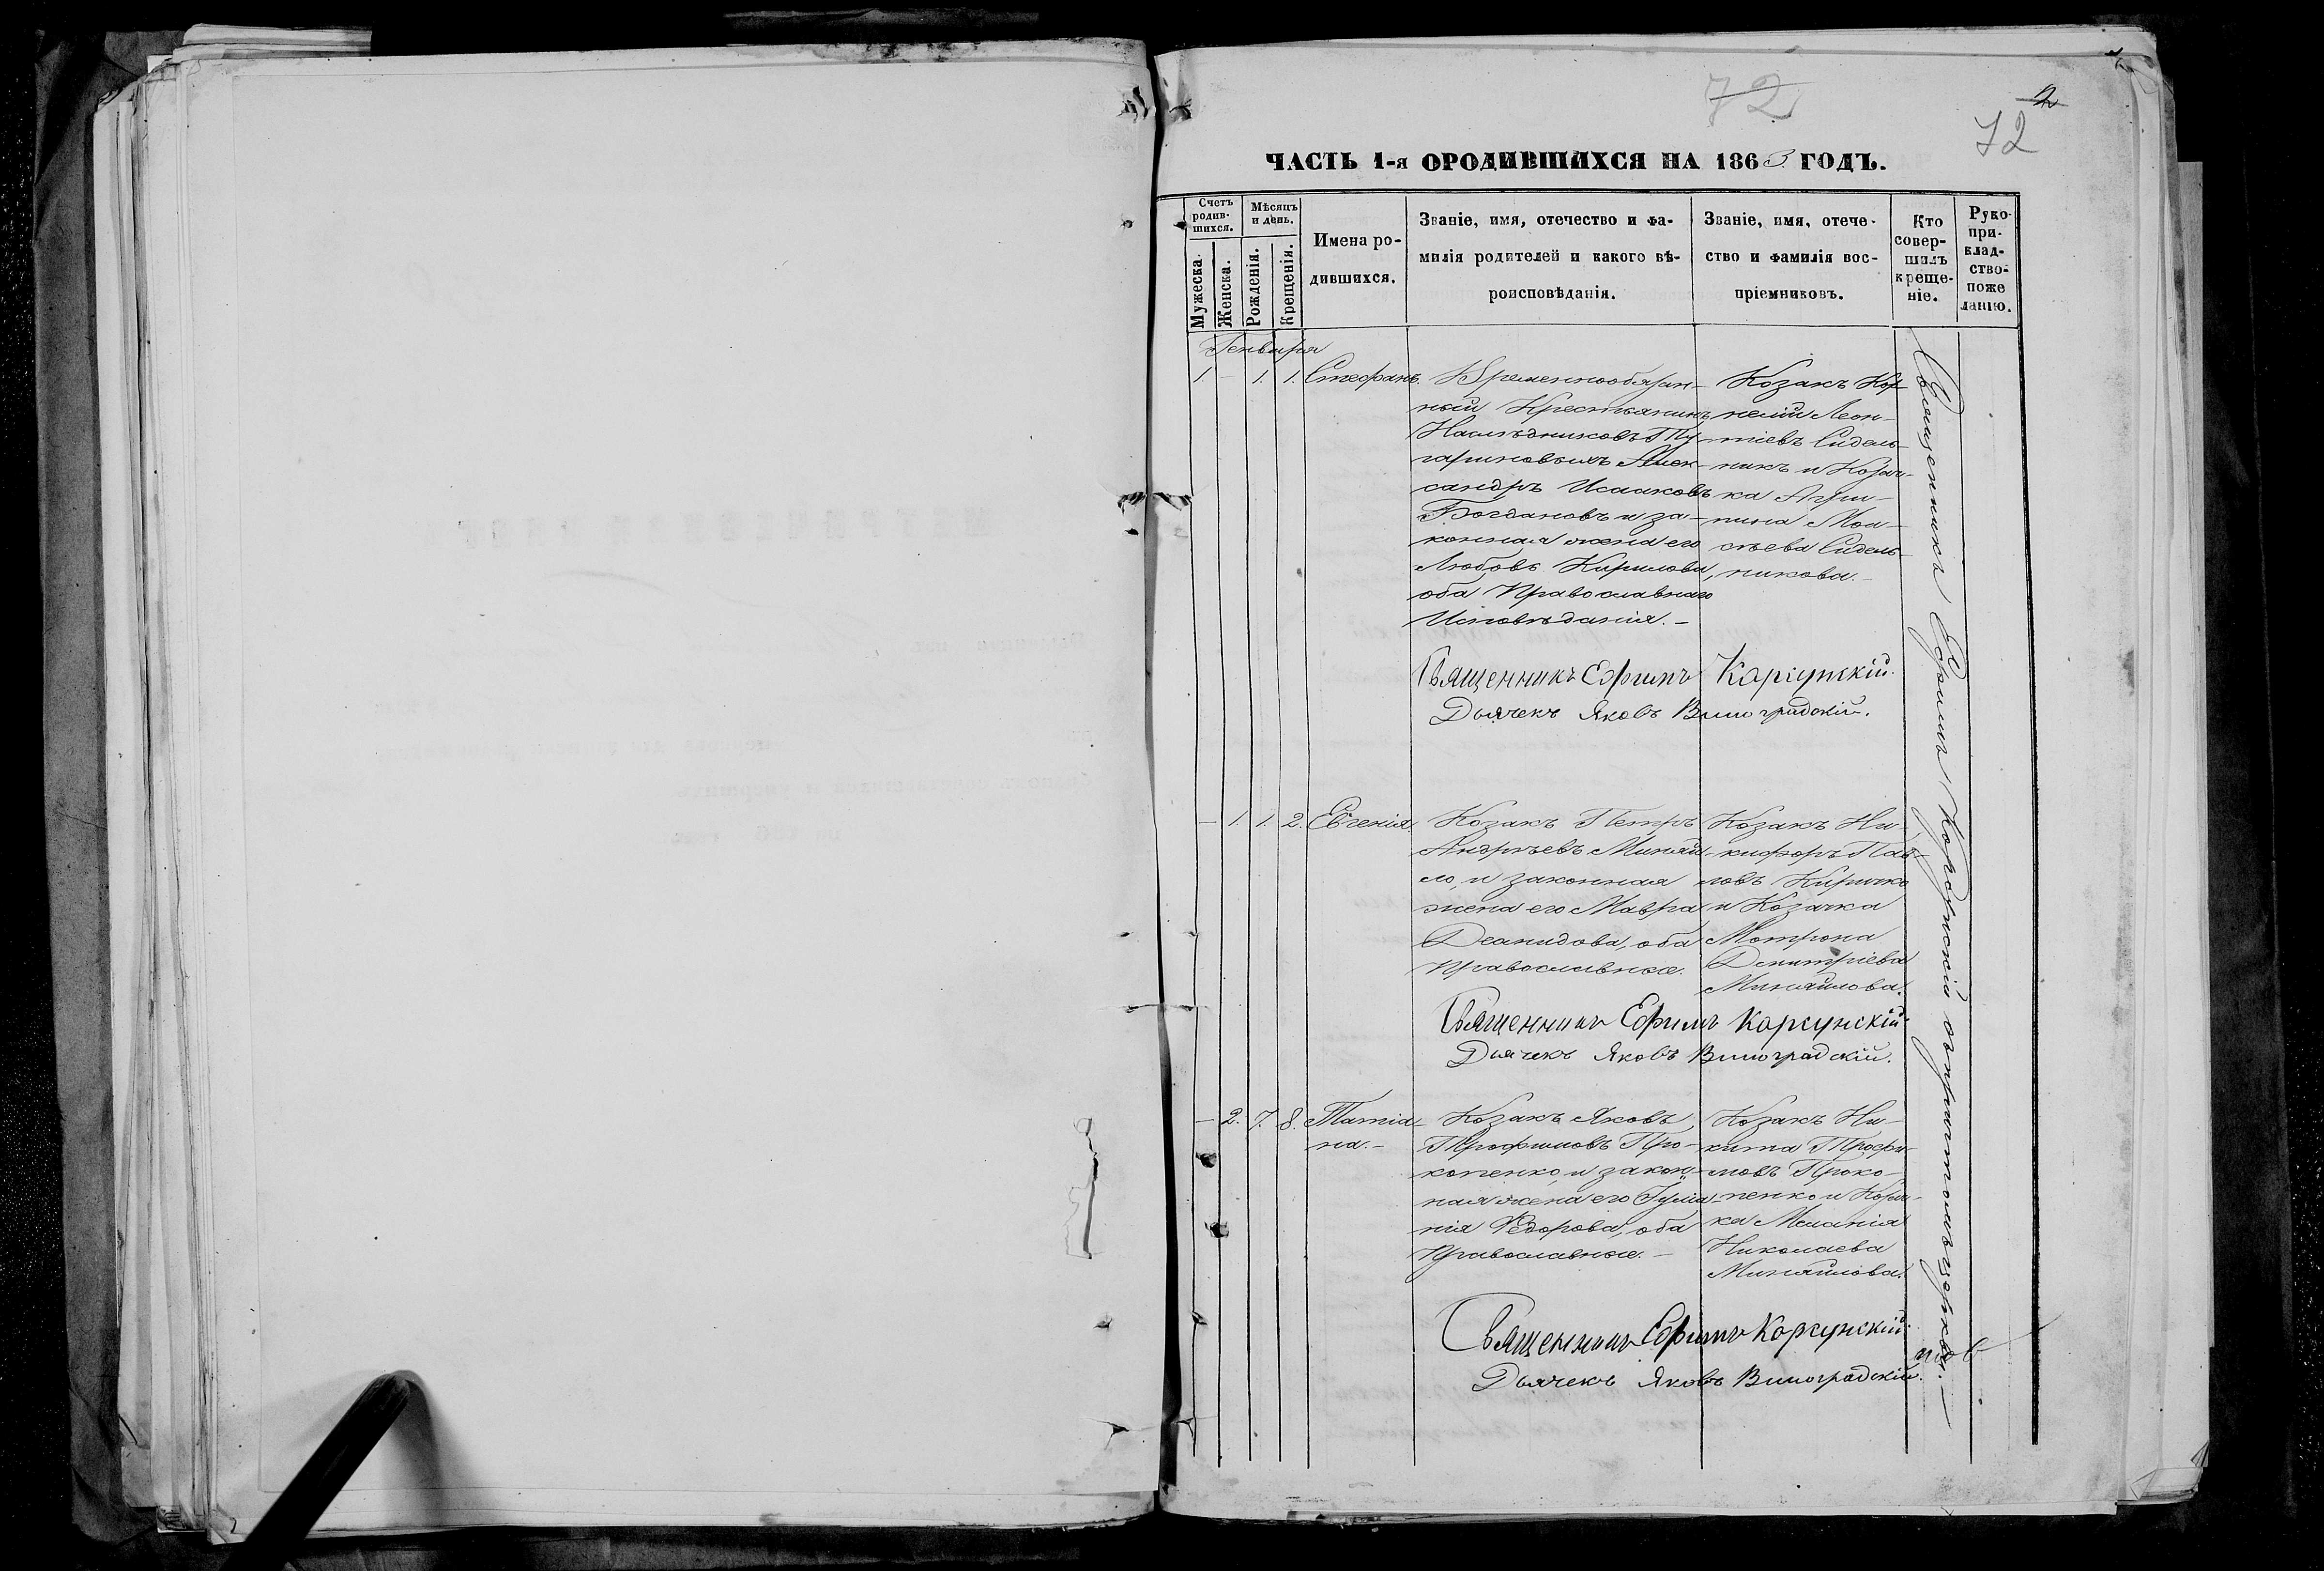 72
2
72
ЧАСТЬ 1-я ОРОДИВШИХСЯ НА 1863 ГОДЪ.
Счетъ родив- шихся.
Мужеска.
Женска.
Мѣсяцъ и день.
Рожденія.
Крещенія.
Имена ро-
дившихся.
Званіе, имя, отечество и фа-
милія родителей и какого вѣ-
роисповѣданія.
Званіе, имя, отече-
ство и фамилія вос-
пріемниковъ.
Кто
совер-
шилъ
креще-
ніе.
Руко-
при-
клад-
ство-
поже
ланію.
Генваря
1. - 1. 1. Стефанъ.
Временнообязан-
ный Крестьянинъ
Наслѣдниковъ
Алек-
сандръ Исааковъ
Богдановъ и за-
конная жена его
Любовь Кирилова,
оба Православнаго
Исповѣданія. -
Козакъ Кор-
нелій Леон-
тіевъ Сидель-
никъ и Козач-
ка Агри-
пина Мои-
сѣева Сидель-
никова. -
Священникъ Ефимъ Корсунскій.
Дьячекъ Яковъ Виноградскій.
- 1. 1. 2. Евгенія.
Козакъ Петръ
Андрѣевъ Миняй-
ло, и законная
жена его Мавра
оба
Православные.
Козакъ Ни-
кифоръ Пав-
ловъ Киричко
и Козачка
Мотрона
Дмитріева
Миняйлова.
Священникъ Ефимъ Корсунскій.
Дьячекъ Яковъ Виноградскій.
- 2. 7. 8. Татіа-
на. -
Козакъ Яковъ
Трофимовъ Про-
копенко, и закон-
ная жена его Іулиа-
нія Ѳедорова, оба
Православные. -
Козакъ Ни-
кита Трофи-
мовъ Проко-
пенко и Козач-
ка Меланія
Николаева
Миняйлова.
Священникъ Ефимъ Корсунскій.
Дьячекъ Яковъ Виноградскій.
Священникъ Ефимъ Корсунскій съ причтомъ церкви. -